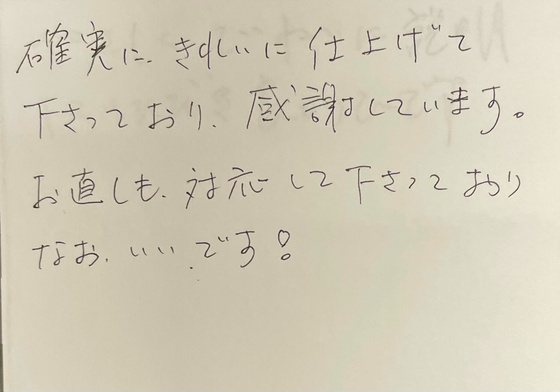 確実に、きれいに仕上げて
下さっており、感謝しています。
お直しも、対応して下さっており
なお、いいです!